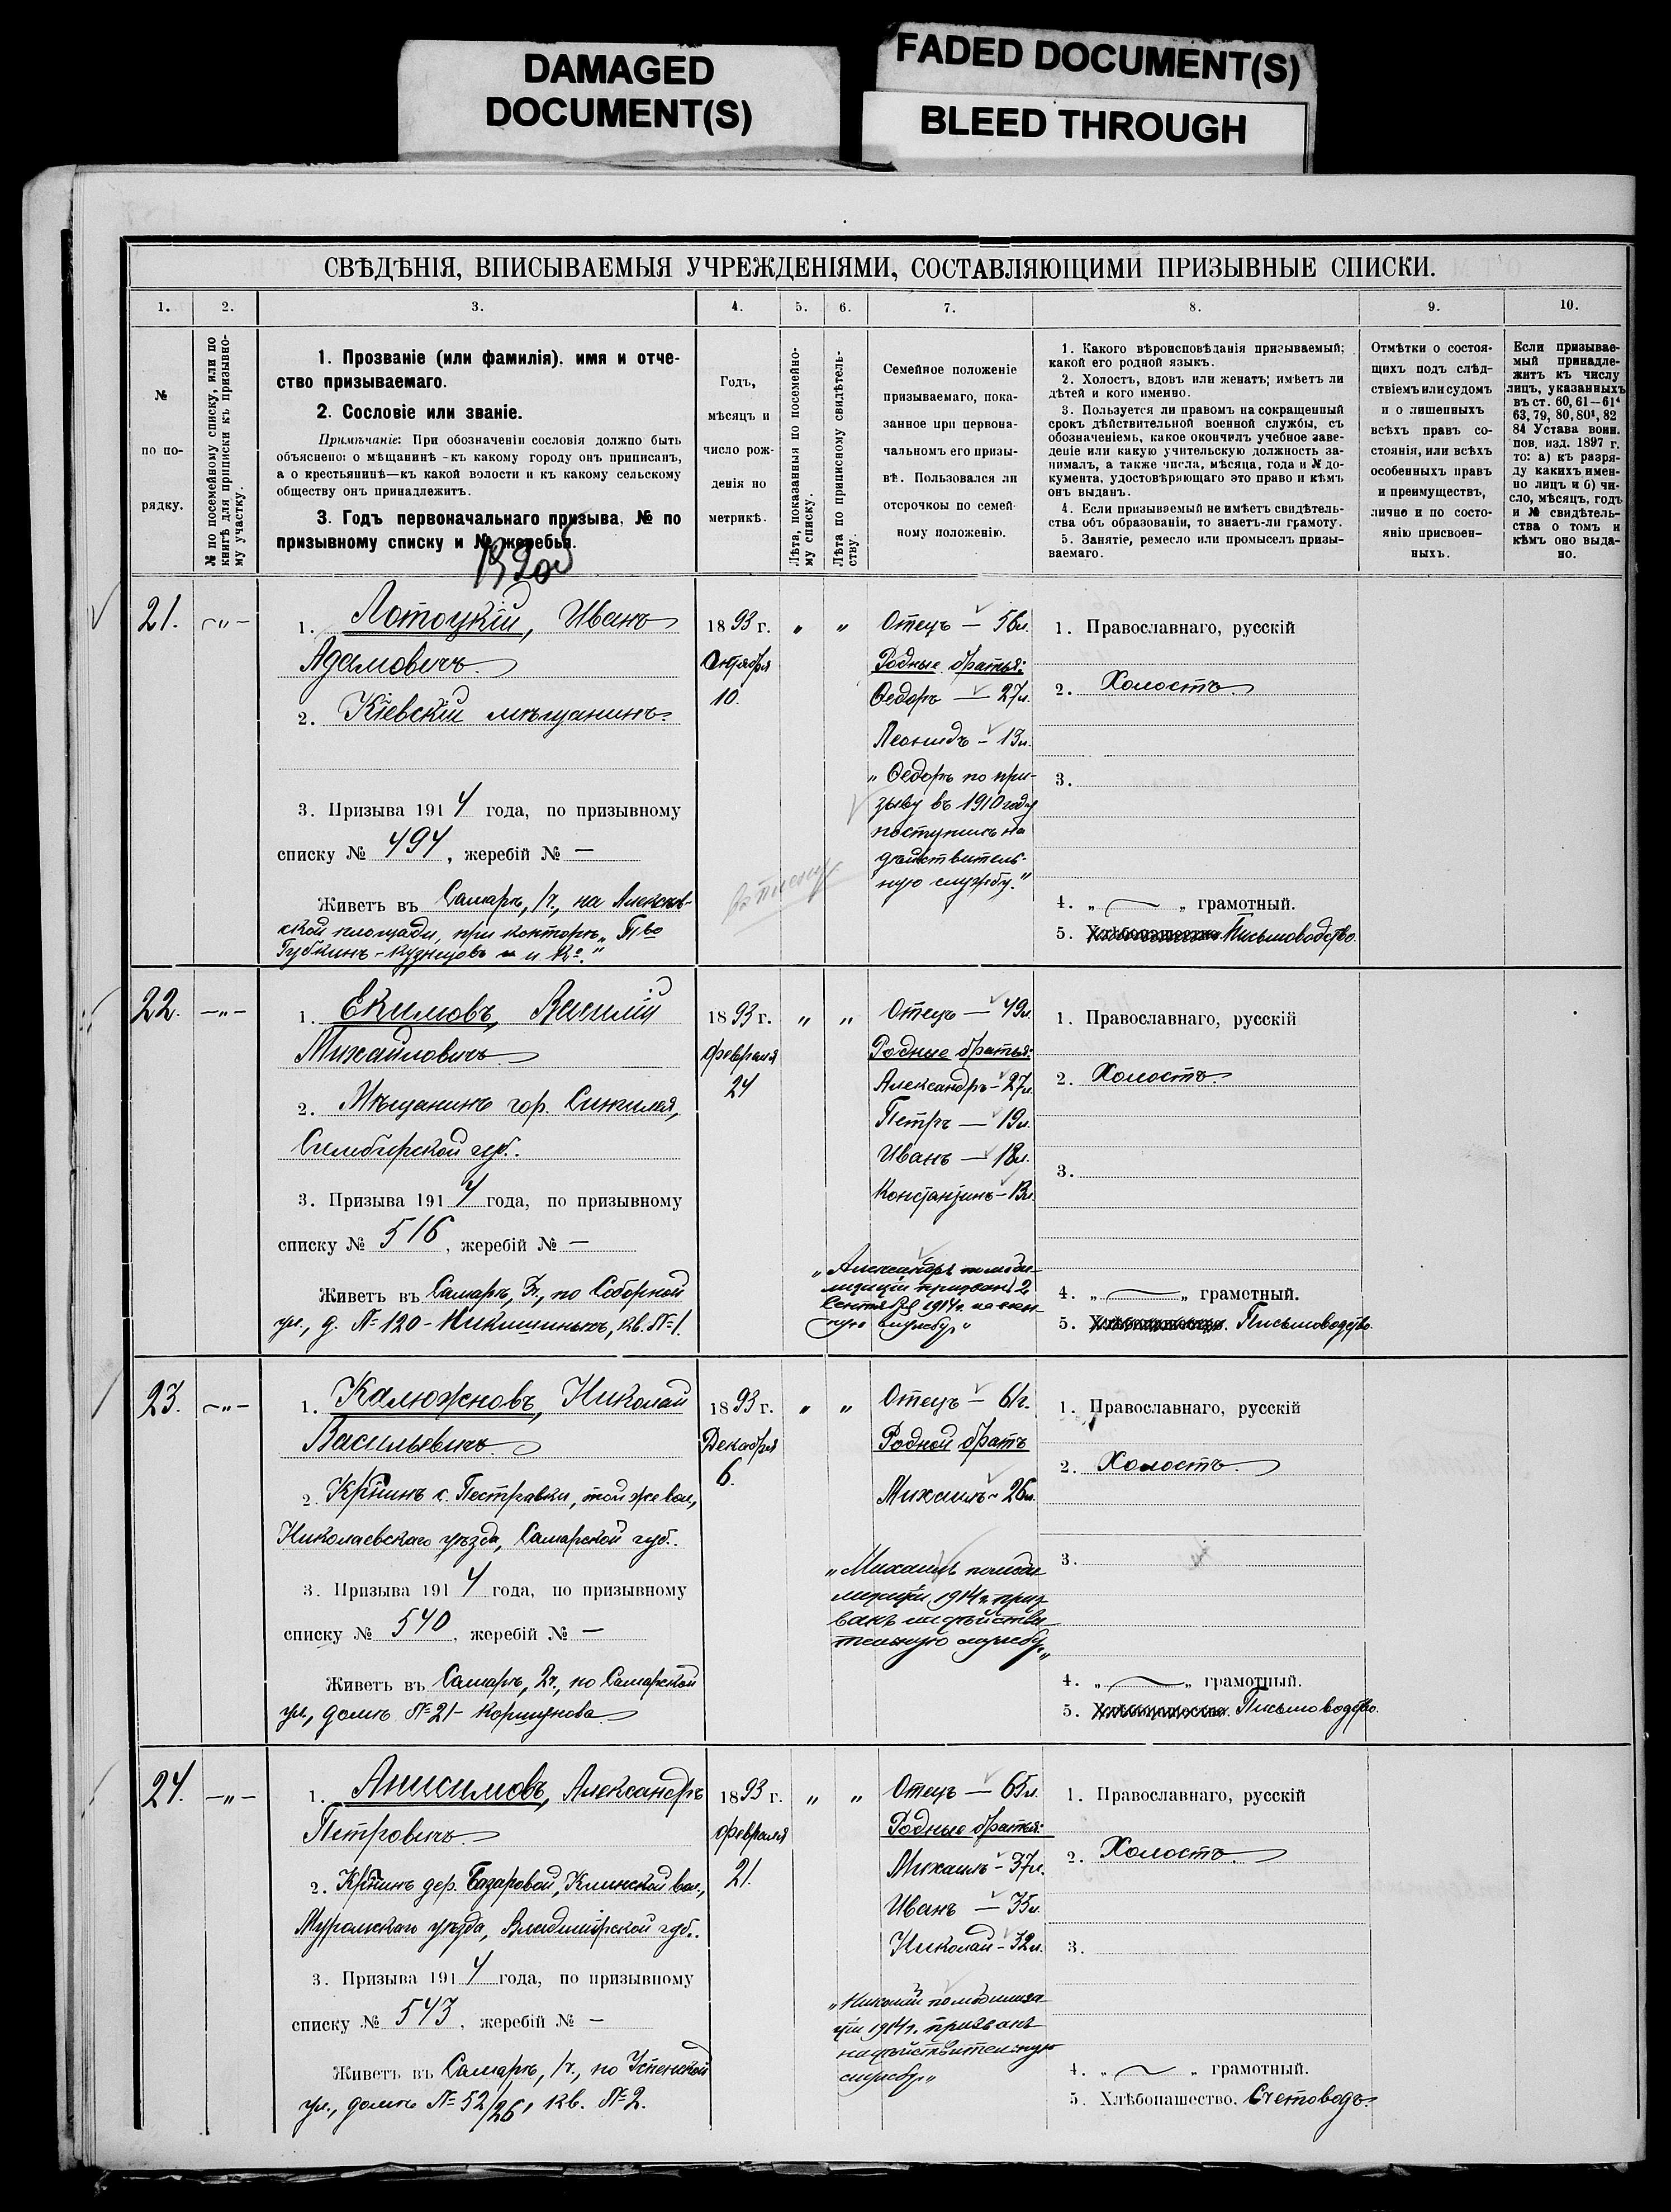 DAMAGED
DOCUMENT(S)
FADED DOCUMENT(S)
BLEED THROUGH
СВѢДѢНІЯ, ВПИСЫВАЕМЫЯ УЧРЕЖДЕНІЯМИ, СОСТАВЛЯЮЩИМИ ПРИЗЫВНЫЕ СПИСКИ.
1. 2. 3. 4. 5. 6. 7. 8. 9. 10.
№
по по-
рядку.
№ по посемейному списку, или по
книгѣ для приписки къ призывно-
му участку.
1. Прозваніе (или фамилія). имя и отче-
ство призываемаго.
2. Сословіе или званіе.
Примѣчаніе: При обозначеніи сословія должно быть
объяснено: о мѣщанинѣ -къ какому городу онъ приписанъ,
а о крестьянинѣ—къ какой волости и къ какому сельскому
обществу онъ принадлежитъ.
3. Годъ первоначальнаго призыва, № по
призывному списку и № жеребья.
Годъ,
мѣсяцъ и
число рож-
денія по
метрикѣ.
Лѣта, показанныя по посемейно-
му списку.
Лѣта по приписному свидѣтель-
ству.
Семейное положеніе
призываемаго, пока-
занное при первона-
чальномъ его призы-
вѣ. Пользовался ли
отсрочкою по семей-
ному положенію.
1. Какого вѣроисповѣданія призываемый;
какой его родной языкъ.
2. Холостъ, вдовъ или женатъ; имѣетъ ли
дѣтей и кого именно.
3. Пользуется ли правомъ на сокращенный
срокъ дѣйствительной военной службы, съ
обозначеніемъ, какое окончилъ учебное заве-
деніе или какую учительскую должность за-
нималъ, а также числа, мѣсяца, года и № до-
кумента, удостовѣряющаго это право и кѣмъ
онъ выданъ.
4. Если призываемый не имѣетъ свидѣтель-
ства объ образованіи, то знаетъ-ли грамоту.
5. Занятіе, ремесло или промыселъ призы-
ваемаго.
Отмѣтки о состоя-
щихъ подъ слѣд-
ствіемъ или судомъ
и о лишенныхъ
всѣхъ правъ со-
стоянія, или всѣхъ
особенныхъ правъ
и преимуществъ,
лично и по состо-
янію присвоен-
ныхъ.
Если призывае-
мый принадле-
житъ къ числу
лицъ, указанныхъ
въ ст. 60, 61—61⁴
63, 79, 80, 80¹, 82
84 Устава воин.
пов. изд. 1897 г.
то: а) къ разря-
ду какихъ имен-
но лицъ и б) чи-
сло, мѣсяцъ, годъ
и № свидѣтель-
ства о томъ и
кѣмъ оно выда-
но.
21. —„—
1. Лотоцкій, Иванъ
Адамовичъ
2. Кіевскій мѣщанинъ.
3. Призыва 1914 года, по призывному
списку № 494, жеребій № —
Живетъ въ Самарѣ, 1ч., на Алексѣев-
ской площади, при конторѣ „Т-во
Губкинъ-Кузнецовъ и Ко."
1893 г.
Октября
10.
„ „
Отецъ — 56л.
Родные братья:
Ѳедоръ — 27л.
Леонидъ — 13л.
„Ѳедоръ по при-
зыву въ 1910 году
поступилъ на
дѣйствитель-
ную службу."
1. Православнаго, русскій
2. Холостъ.
3.
4. „ — „ грамотный.
5. Хлѣбопашество. Письмоводство.
22. —„—
1. Екимовъ, Василій
Михайловичъ
2. Мѣщанинъ гор. Сингилея,
Симбирской губ..
3. Призыва 1914 года, по призывному
списку № 516, жеребій № —
Живетъ въ Самарѣ, 3ч., по Соборной
ул., д. № 120 - Никишиныхъ, кв. № 1.
1893 г.
Февраля
24
„ „
Отецъ — 49л.
Родные братья:
Александръ — 27л.
Петръ — 19л.
Иванъ — 18л.
Константинъ — 13л.
„Александръ по моби-
лизаціи призванъ 2
Сентября 1914 г. на
службу"
1. Православнаго, русскій
2. Холостъ.
3.
4. „ — „ грамотный.
5. Хлѣбопашество. Письмоводство.
23. —„—
1. Калюжновъ, Николай
Васильевичъ
2. Кр-нинъ с. Пестравки, той же вол.,
Николаевскаго уѣзда, Самарской губ..
3. Призыва 1914 года, по призывному
списку № 540, жеребій № —
Живетъ въ Самарѣ, 2ч., по Самарской
ул., домъ № 21 - Коршунова
1893 г.
Декабря
6.
„ „
Отецъ — 61г.
Родной братъ
Михаилъ — 26л.
„Михаилъ по моби-
лизаціи 1914 г. приз-
ванъ на дѣйстви-
тельную службу„
1. Православнаго, русскій
2. Холостъ.
3.
4. „ — „ грамотный.
5. Хлѣбопашество. Письмоводство.
24. —„—
1. Анисимовъ, Александръ
Петровичъ
2. Кр-нинъ дер. Базаровой, Клинской вол.,
Муромскаго уѣзда, Владимірской губ..
3. Призыва 1914 года, по призывному
списку № 543, жеребій № —
Живетъ въ Самарѣ, 1ч., по Успенской
ул., домъ № 52/26, кв. № 2.
1893 г.
Февраля
21.
„ „
Отецъ — 65л.
Родные братья:
Михаилъ — 37л.
Иванъ — 35л.
Николай — 32л.
„Николай по мобилиза-
ціи 1914 г. призванъ
на дѣйствительную
службу„
1. Православнаго, русскій
2. Холостъ.
3.
4. „ — „ грамотный.
5. Хлѣбопашество. Счетоводъ.